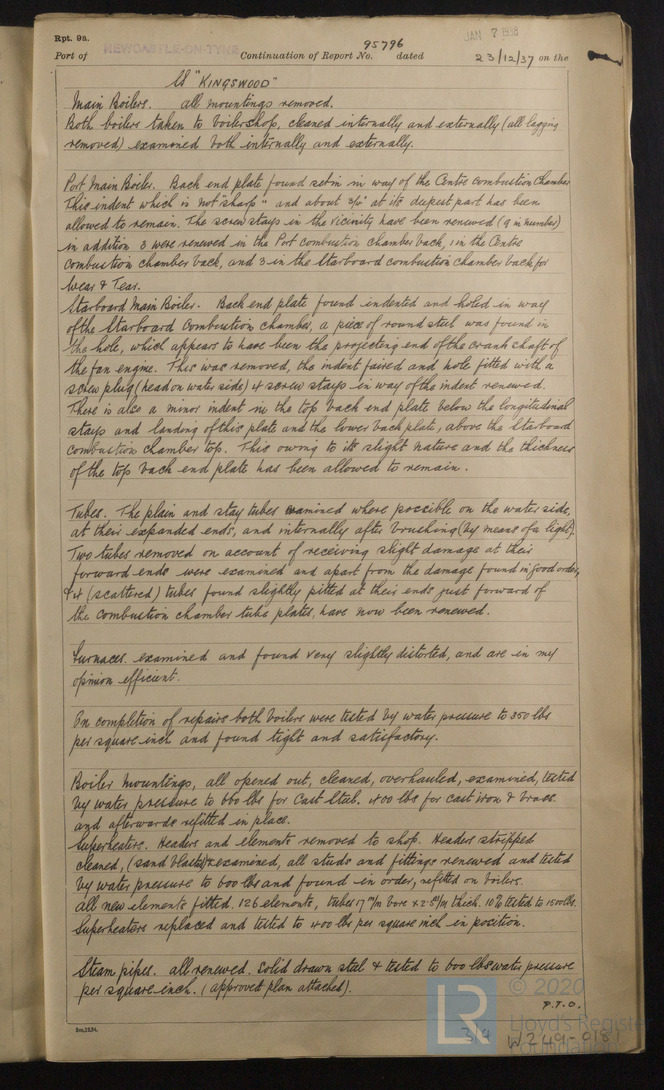 Rpt. 9a.
JAN 7 1938
Port of NEWCASTLE-ON-TYNE Continuation of Report No. 95796 dated 23/12/37 on the
SS "KINGSWOOD"
Main Boilers. all mountings removed.
Both boilers taken to boilershop, cleaned internally and externally (all lagging
removed) examined both internally and externally.
Port Main Boiler. Back end plate found set in in way of the Centre combustion chamber
This indent which is "not sharp" and about 3/8" at its deepest part has been
allowed to remain. The screw stays in the vicinity have been renewed (9 in number)
in addition 3 were renewed in the Port combustion chamber back, 1 in the Centre
combustion chamber back, and 3 in the Starboard combustion chamber back for
Wear & Tear.
Starboard Main Boiler. Back end plate found indented and holed in way
of the Starboard Combustion chamber, a piece of round steel was found in
the hole, which appears to have been the projecting end of the crank shaft of
the fan engine. This was removed, the indent faired and hole fitted with a
screw plug (head on water side) & screw stays in way of the indent renewed.
There is also a minor indent in the top back end plate below the longitudinal
stays and landing of this plate and the lower back plate, above the Starboard
combustion chamber top. This owing to its slight nature and the thickness
of the top back end plate has been allowed to remain.
Tubes. The plain and stay tubes examined where possible on the water side,
at their expanded ends, and internally after brushing (by means of a light).
Two tubes removed on account of receiving slight damage at their
forward ends were examined and apart from the damage found in good order,
& 4 (scattered) tubes found slightly pitted at their ends just forward of
the combustion chamber tube plates, have now been renewed.
Furnaces. examined and found very slightly distorted, and are in my
opinion efficient.
On completion of repairs both boilers were tested by water pressure to 350 lbs
per square inch and found tight and satisfactory.
Boiler Mountings, all opened out, cleaned, overhauled, examined, tested
by water pressure to 660 lbs for Cast Steel. 400 lbs for cast iron & brass.
and afterwards refitted in place.
Superheaters. Headers and elements removed to shop. Headers stripped
cleaned, (sand blasted) & examined, all studs and fittings renewed and tested
by water pressure to 600 lbs and found in order, refitted on boilers.
All new elements fitted. 126 elements, tubes 17 m/m bore x 2.5 m/m thick. 10% tested to 1500 lbs.
Superheaters replaced and tested to 400 lbs per square inch in position.
Steam pipes. all renewed. Solid drawn steel & tested to 600 lbs water pressure
per square inch. (approved plan attached).
P.T.O.
3/4
W249-0181
LR
© 2020
Lloyd's Register
Foundation